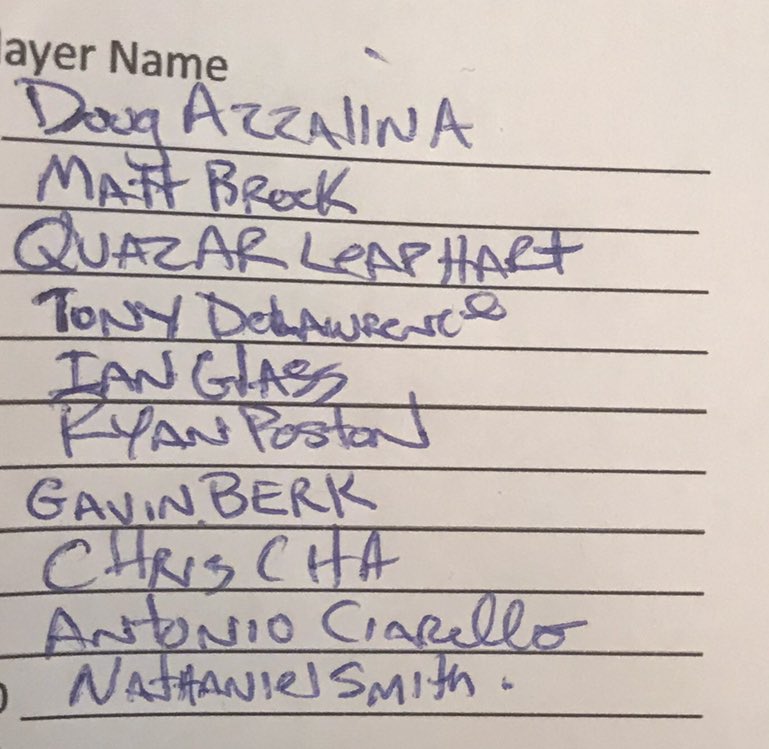 layer Name
Doug AZZAlINA
MAtt BRock
QUAZAR LeAPHARt
TONY DeLAWRENCe
IAN GlASS
RYAN PostoN
GAVIN BERK
CHRIS CHA
ANtONIO CIARello
NAtHANIel SMIth.